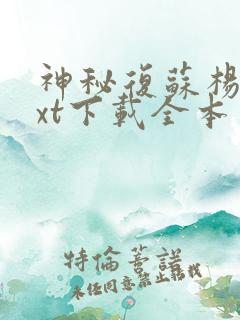 神秘復蘇楊
xt下載全本
特倫蒂諾
未经同意禁止转载